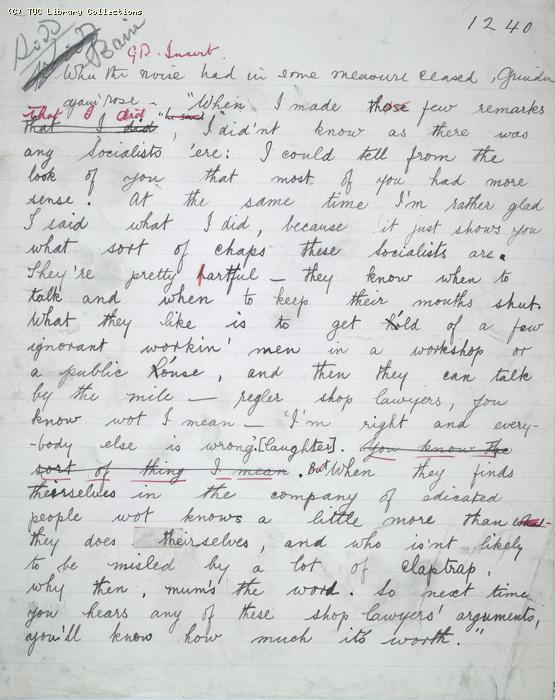 (C) TUC Library Collections
1240
Bain
G.R. Insert.
When the noise had in some measure ceased, Grinder
again rose – "When I made those few remarks
that I did
that I did "he said", I did'nt know as there was
any Socialists 'ere: I could tell from the
look of you that most of you had more
sense. At the same time I'm rather glad
I said what I did, because it just shows you
what sort of chaps these Socialists are.
They're pretty hartful – they know when to
talk and when to keep their mouths shut.
What they like is to get 'old of a few
ignorant workin' men in a workshop or
a public 'ouse, and then they can talk
by the mile – regler shop lawyers, you
know wot I mean – 'I'm right and every-
-body else is wrong. [laughter]. You know the
sort of thing I mean. But When they finds
theirselves in the company of edicated
people wot knows a little more than
they does theirselves, and who is'nt likely
to be misled by a lot of claptrap,
why then, mum's the word. So next time
you hears any of these shop lawyers' arguments,
you'll know how much it's worth."